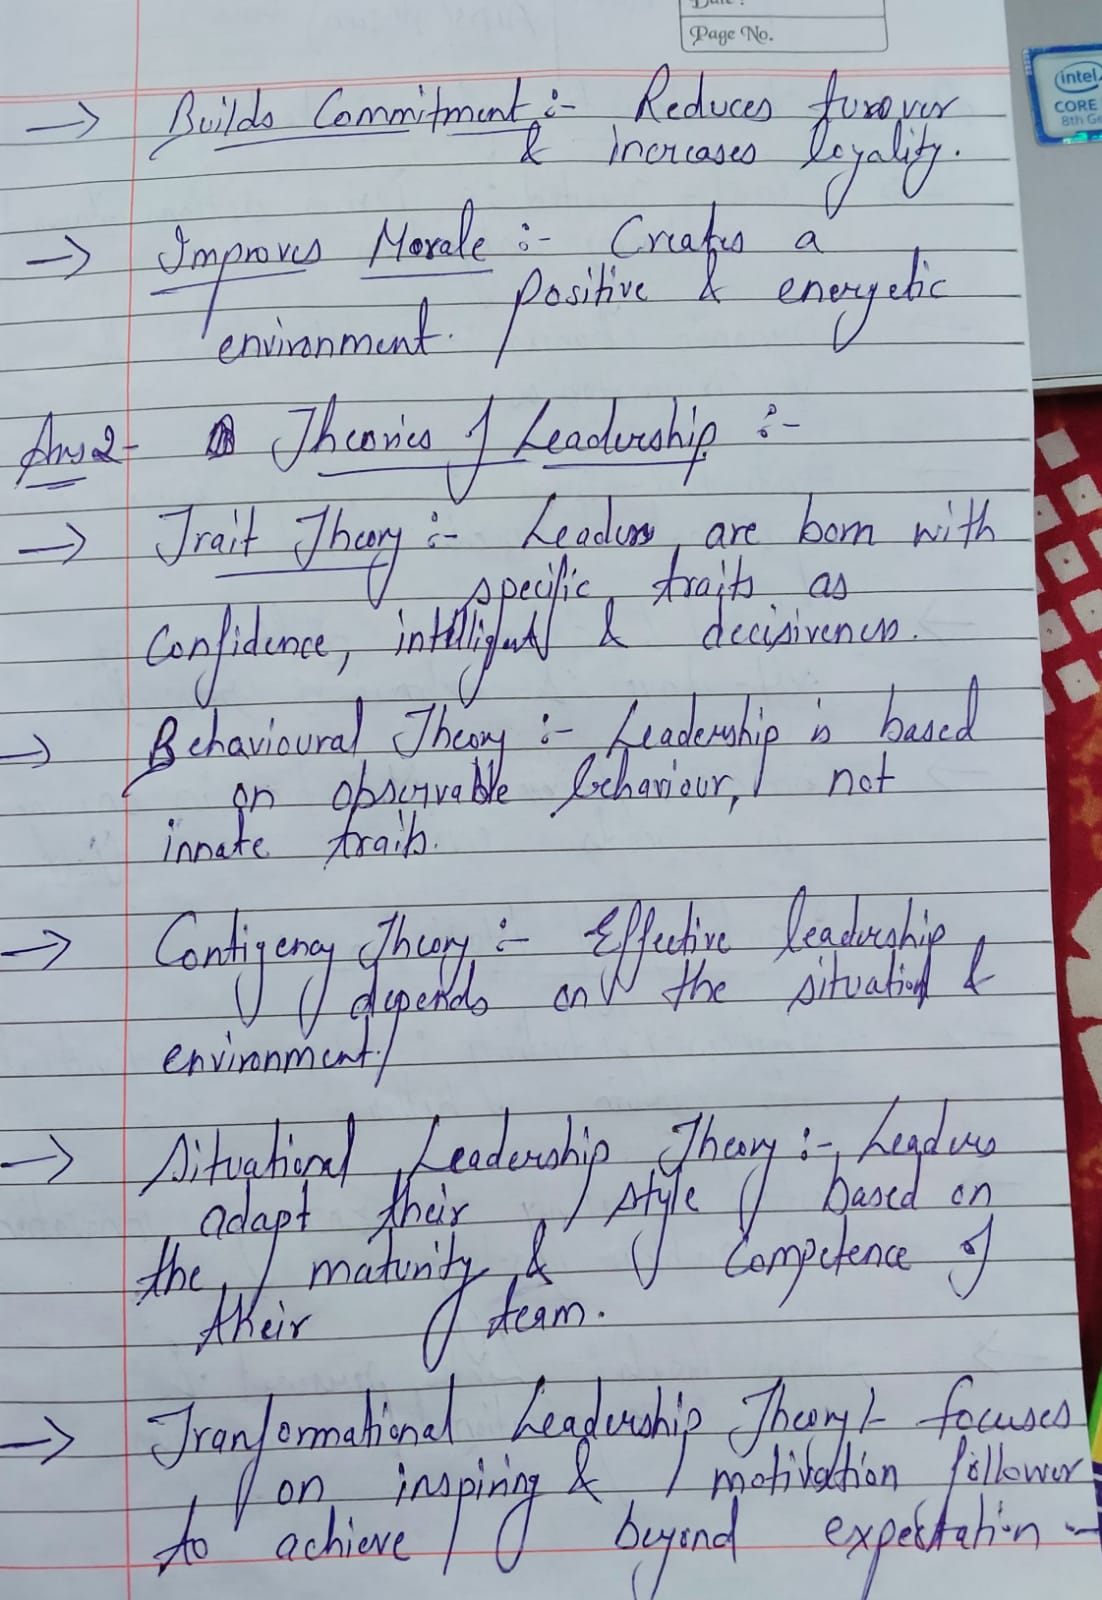 Date :
Page No.
intel
CORE
8th Ge
→ Builds Commitment :- Reduces turover
& increases loyality.
→ Improves Morale :- Creates a
positive & energetic
environment.
Ans 2- Theories of Leadership :-
→ Trait Theory :- Leaders are born with
specific traits as
Confidence, intelligent & decisiveness.
→ Behavioural Theory :- Leadership is based
on observable behaviour, not
innate traits.
→ Contigency Theory :- Effective leadership
depends on the situation &
environment.
→ Situational Leadership Theory :- Leaders
adapt their style based on
the maturity & Competence of
their team.
→ Tranformational Leadership Theory :- focuses
on inspiring & motivation follower
to achieve beyond expectation